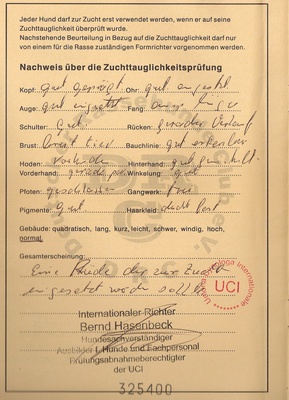 Jeder Hund darf zur Zucht erst verwendet werden, wenn er auf seine
Zuchttauglichkeit überprüft wurde.
Nachstehende Beurteilung in Bezug auf die Zuchttauglichkeit darf nur
von einem für die Rasse zuständigen Formrichter vorgenommen werden.
Nachweis über die Zuchttauglichkeitsprüfung
Kopf: gut geprägt Ohr: gut angesetzt
Auge: gut eingesetzt Fang:
Schulter: gut Rücken: gerader Verlauf
Brust: Bauchlinie: gut
Hoden: Hinterhand: gut
Vorderhand: gerade Winkelung: gut
Pfoten: geschlossen Gangwerk: frei
Pigmente: gut Haarkleid: dicht fest
Gebäude: quadratisch, lang, kurz, leicht, schwer, windig, hoch,
normal.
Gesamterscheinung:
Eine Rüde der zur Zucht
eingesetzt werden sollte
Universal Kynologa Internationale
UCI
Internationaler Richter
Bernd Hasenbeck
Hundesachverständiger
Ausbilder f. Hunde und Fachpersonal
Prüfungsabnahmeberechtigter
der UCI
325400